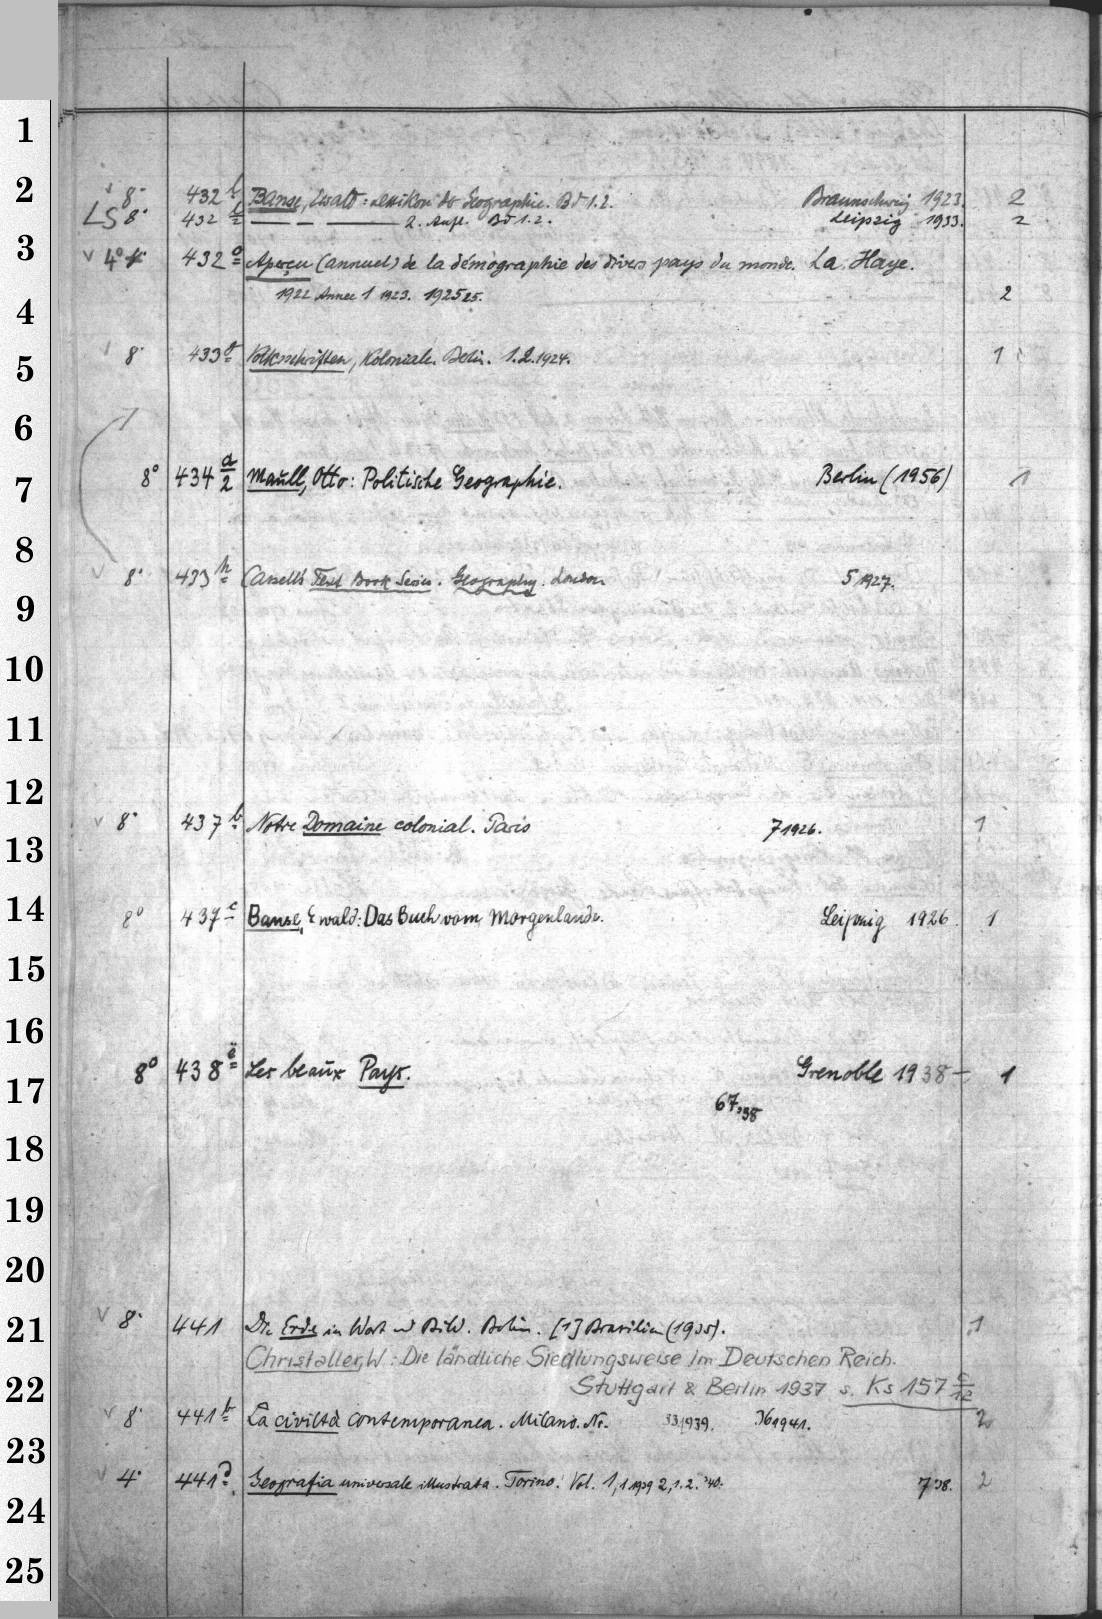 1
2
3
4
5
6
7
8
9
10
11
12
13
14
15
16
17
18
19
20
21
22
23
24
25
8° 432 b Banse, Ewald: Lexikon der Geographie. Bd 1.2. Braunschweig 1923. 2
LS 8° 432 — — — 2. Aufl. Bd 1.2. Leipzig 1933. 2
v 4° 432 Aperçu (annuel) de la démographie des divers pays du monde. La Haye.
1922 Année 1 1923. 1925 25. 2
8° 433 g Volksschriften, Koloniale. Berlin. 1.2.1924. 1
8° 434 a/2 Maull, Otto: Politische Geographie. Berlin (1956) 1
v 8° 433 h Cassell's Text Book Series. Geography. London 5 1927.
v 8° 437 b Notre Domaine colonial. Paris 7 1926. 1
8° 437 c Banse, Ewald: Das Buch vom Morgenlande. Leipzig 1926. 1
8° 438 e Les beaux Pays. Grenoble 1938 – 1
67,38
v 8° 441 Die Erde in Wort und Bild. Berlin. [1] Brasilien (1935). 1
Christaller, W.: Die ländliche Siedlungsweise im Deutschen Reich.
Stuttgart & Berlin 1937 s. Ks 157 c/12
v 8° 441 b La civiltà contemporanea. Milano. Nr. 33 1939. 36 1941. 2
v 4° 441 Geografia universale illustrata. Torino. Vol. 1,1 1939 2,1.2. '40. 7 '38. 2